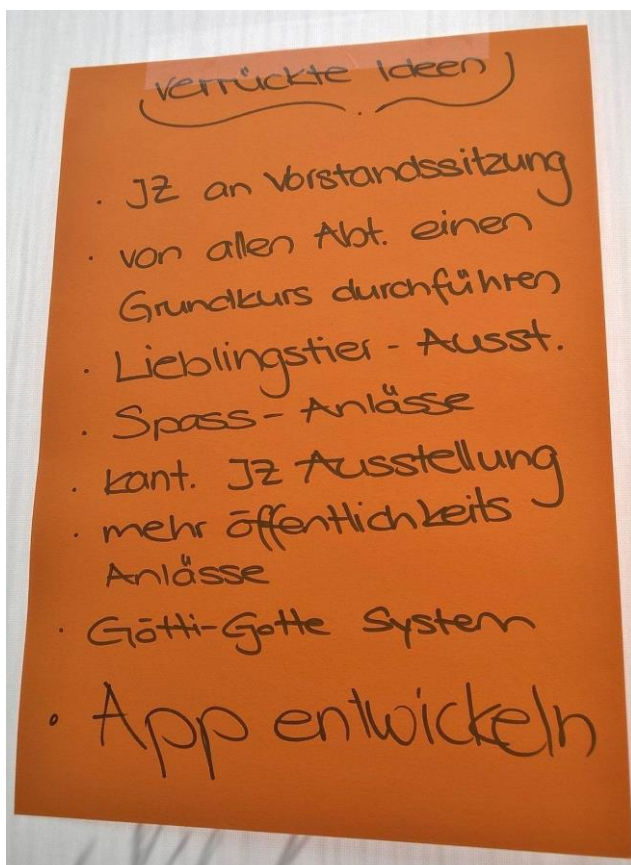 verrückte Ideen
· JZ an Vorstandssitzung
· von allen Abt. einen
Grundkurs durchführen
· Lieblingstier - Ausst.
· Spass - Anlässe
· kant. JZ Ausstellung
· mehr öffentlichkeits
Anlässe
· Götti-Gotte System
· App entwickeln